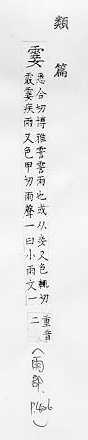 類篇
霎 悉合切博雅霎霎雨也或从妾又色輒切
霰霎疾雨又色甲切雨聲一曰小雨文一
重音
二
(雨部,